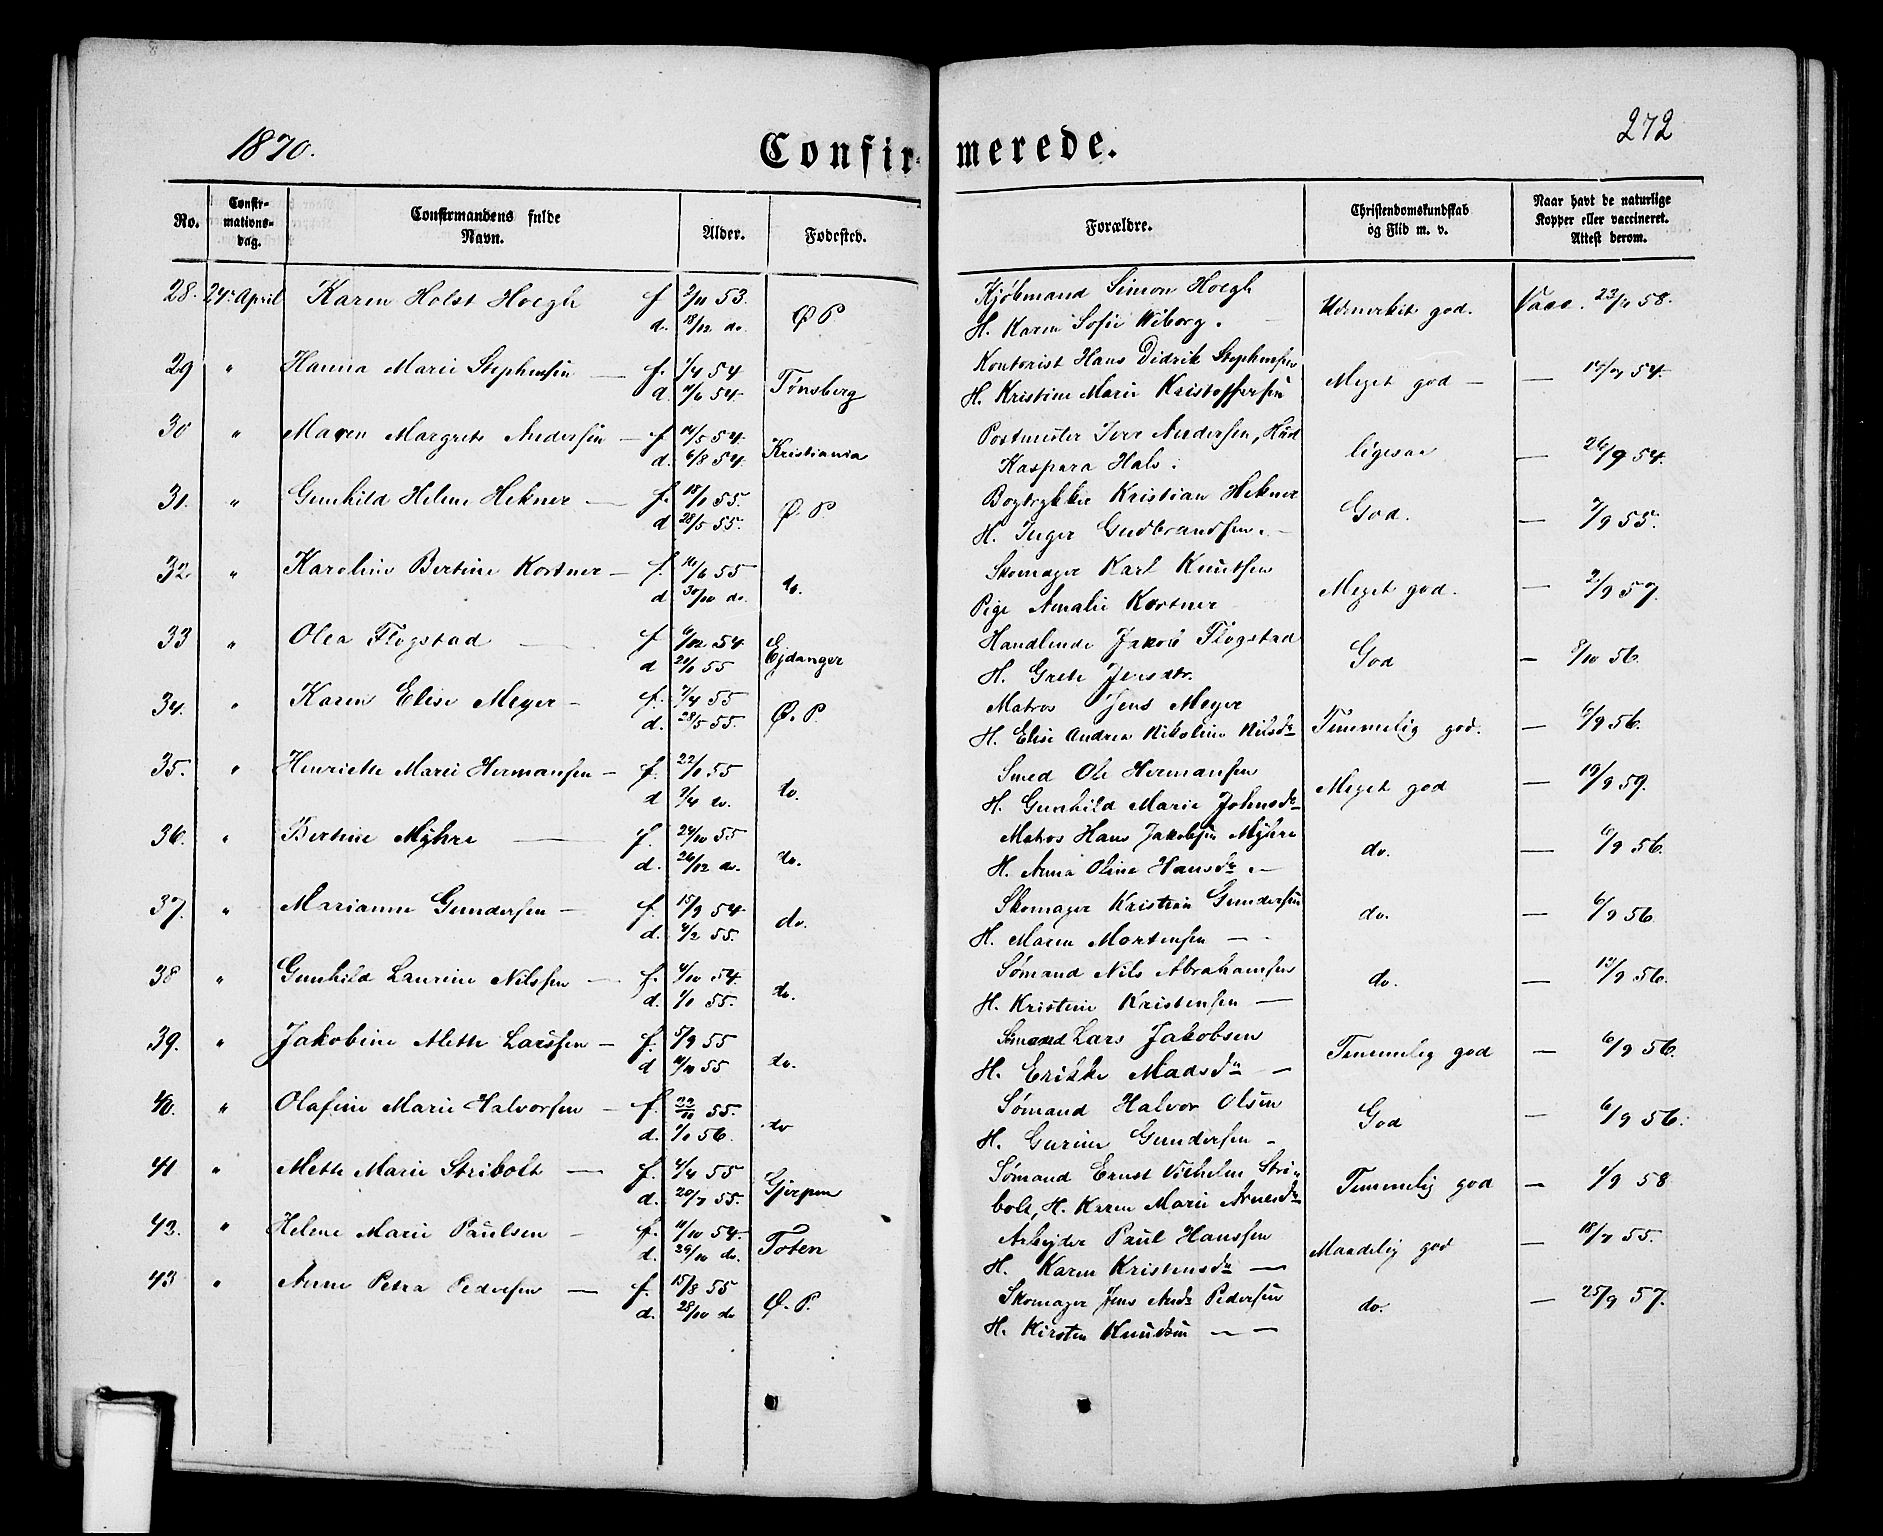 1870.
Confirmerede.
272
No.
Confirmationsdag.
Confirmandens fulde Navn.
Alder.
Fødested.
Forældre.
Christendomskundskab og Flid m. v.
Naar havt de naturlige Kopper eller vaccineret. Attest derom.
28. 24de April Karen Holst Hoegh f 2/11 53. Ø P Kjøbmand Simon Hoegh Udmerket god. Vacc. 58.
d. 18/12 do. H. Karen Sofie Wiborg.
29 " Hanna Marie Stephensen — f. 1/4 54 Tønsberg Kontorist Hans Didrik Stephensen Meget god — — 54.
d. 11/6 54. H. Kristine Marie Kristoffersen
30 " Maren Margrete Andersen — f 14/5 54. Kristiania Postmester Iver Andersen, Hust ligesaa — 26/9 54.
d. 6/8 54. Kaspara Hals.
31. " Gunhild Helene Hekner — f. 18/1 55. Ø. P. Bogtrykker Kristian Hekner God. — 7/9 55.
d 28/5 55. H. Inger Gudbrandsen. —
32 " Karoline Bertine Kortner — f. 16/6 55 do. Skomager Karl Knutsen Meget god. — 2/9 57.
d 30/10 do. Pige Amalie Kortner
33 " Olea Flogstad — f 6/12 54. Ejdanger Handlende Jakob Flogstad God — 8/10 56.
d 21/1 55 H. Grete Jensdtr.
34. " Karen Elise Meyer — f. 7/4 55 Ø. P. Matros Jens Meyer Temmelig god. — 6/9 56.
d. 28/5 55. H. Elise Andrea Nikoline Nilsdr
35. " Henriette Marie Hermansen — f. 22/1 55 do. Smed Ole Hermansen Meget god — 19/9 59.
d 9/4 do. H. Gunhild Marie Johnsdr
36. " Bertine Myhre — f. 24/10 55 do. Matros Hans Jakobsen Myhre do. — 6/9 56.
d. 26/12 do. H. Anna Oline Hansdr. —
37. " Marianne Gundersen — f. 15/9 54 do. Skomager Kristian Gundersen do. — 6/9 56
d. 4/2 55. H. Maren Mortensen —
38 " Gunhild Laurine Nilssen — f. 4/10 54. do. Sømand Nils Abrahamsen do. — 13/9 56.
d. 1/1 55. H. Kristine Kristensen —
39. " Jakobine Mette Larssen — f. 5/9 55 do. Sømand Lars Jakobsen Temmelig god — 6/9 56.
d 11/11 55 H. Erikke Madsdr —
40. " Olafine Marie Halvorsen — f. 22/10 55. do Sømand Halvor Olsen God — 6/9 56.
d. 1/1 56. H. Gurine Gundersen —
41 " Mette Marie Stribolt — f. 4/4 55 Gjerpen Sømand Ernst Vilhelm Stri- Temmelig god — 1/9 58
d. 20/7 55. bolt, H. Karen Marie Arnesdr
42. " Helene Marie Paulsen — f. 11/10 54. Toten Arbejder Paul Hanssen Maadelig god — 18/7 55.
d. 29/10 do. H. Karen Kristensdr —
43 " Anne Petra Pedersen — f. 15/8 55 Ø. P. Skomager Jens Andr Pedersen do. — 25/9 57.
d. 28/10 do H. Kirsten Knudsen —